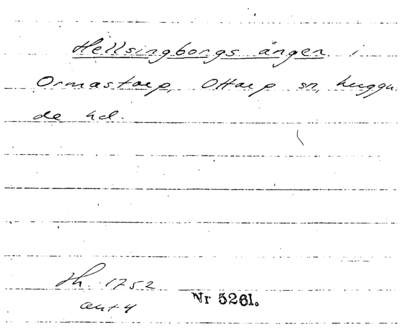 Hellsingborgs ången i
Ormastorp, Ottarp sn, Luggu
de hd.
Hh. 1752
ant 4
Nr 5261.